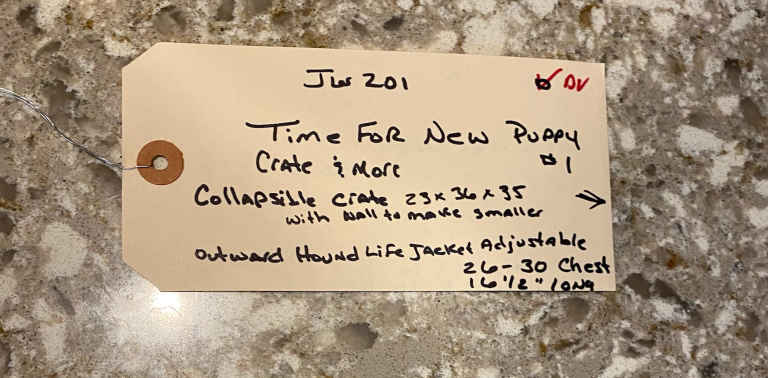 JW 201 DV
Time For New Puppy
Crate & More #1
Collapsible Crate 23x36x35 →
with wall to make smaller
Outward Hound Life Jacket Adjustable
26-30 Chest
16 1/2" long